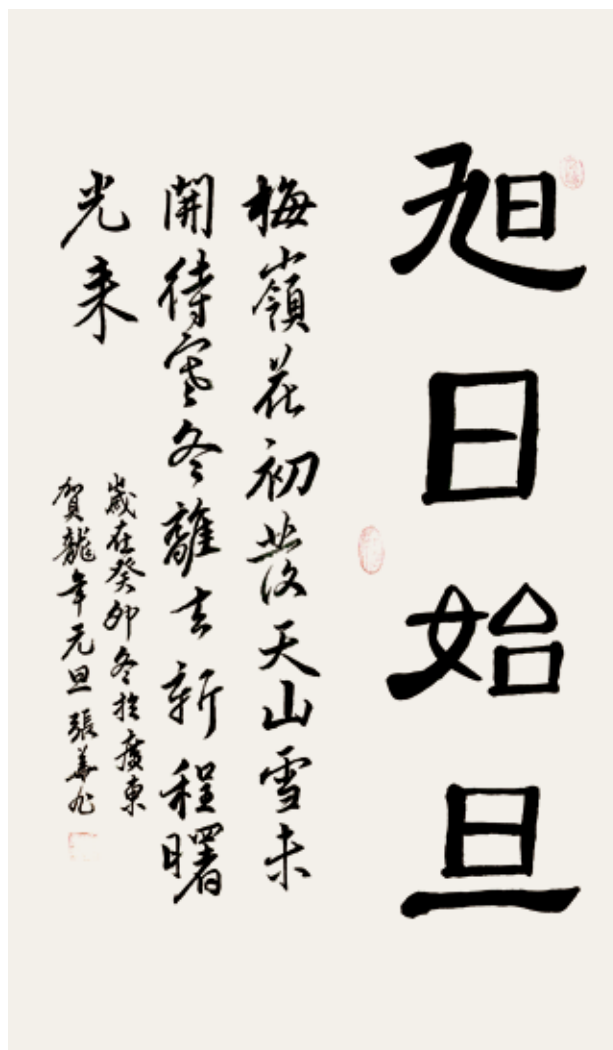 旭日始旦
梅嶺花初發天山雪未
開待寒冬離去新程曙
光来
歲在癸卯冬於廣東
賀龍年元旦 張華